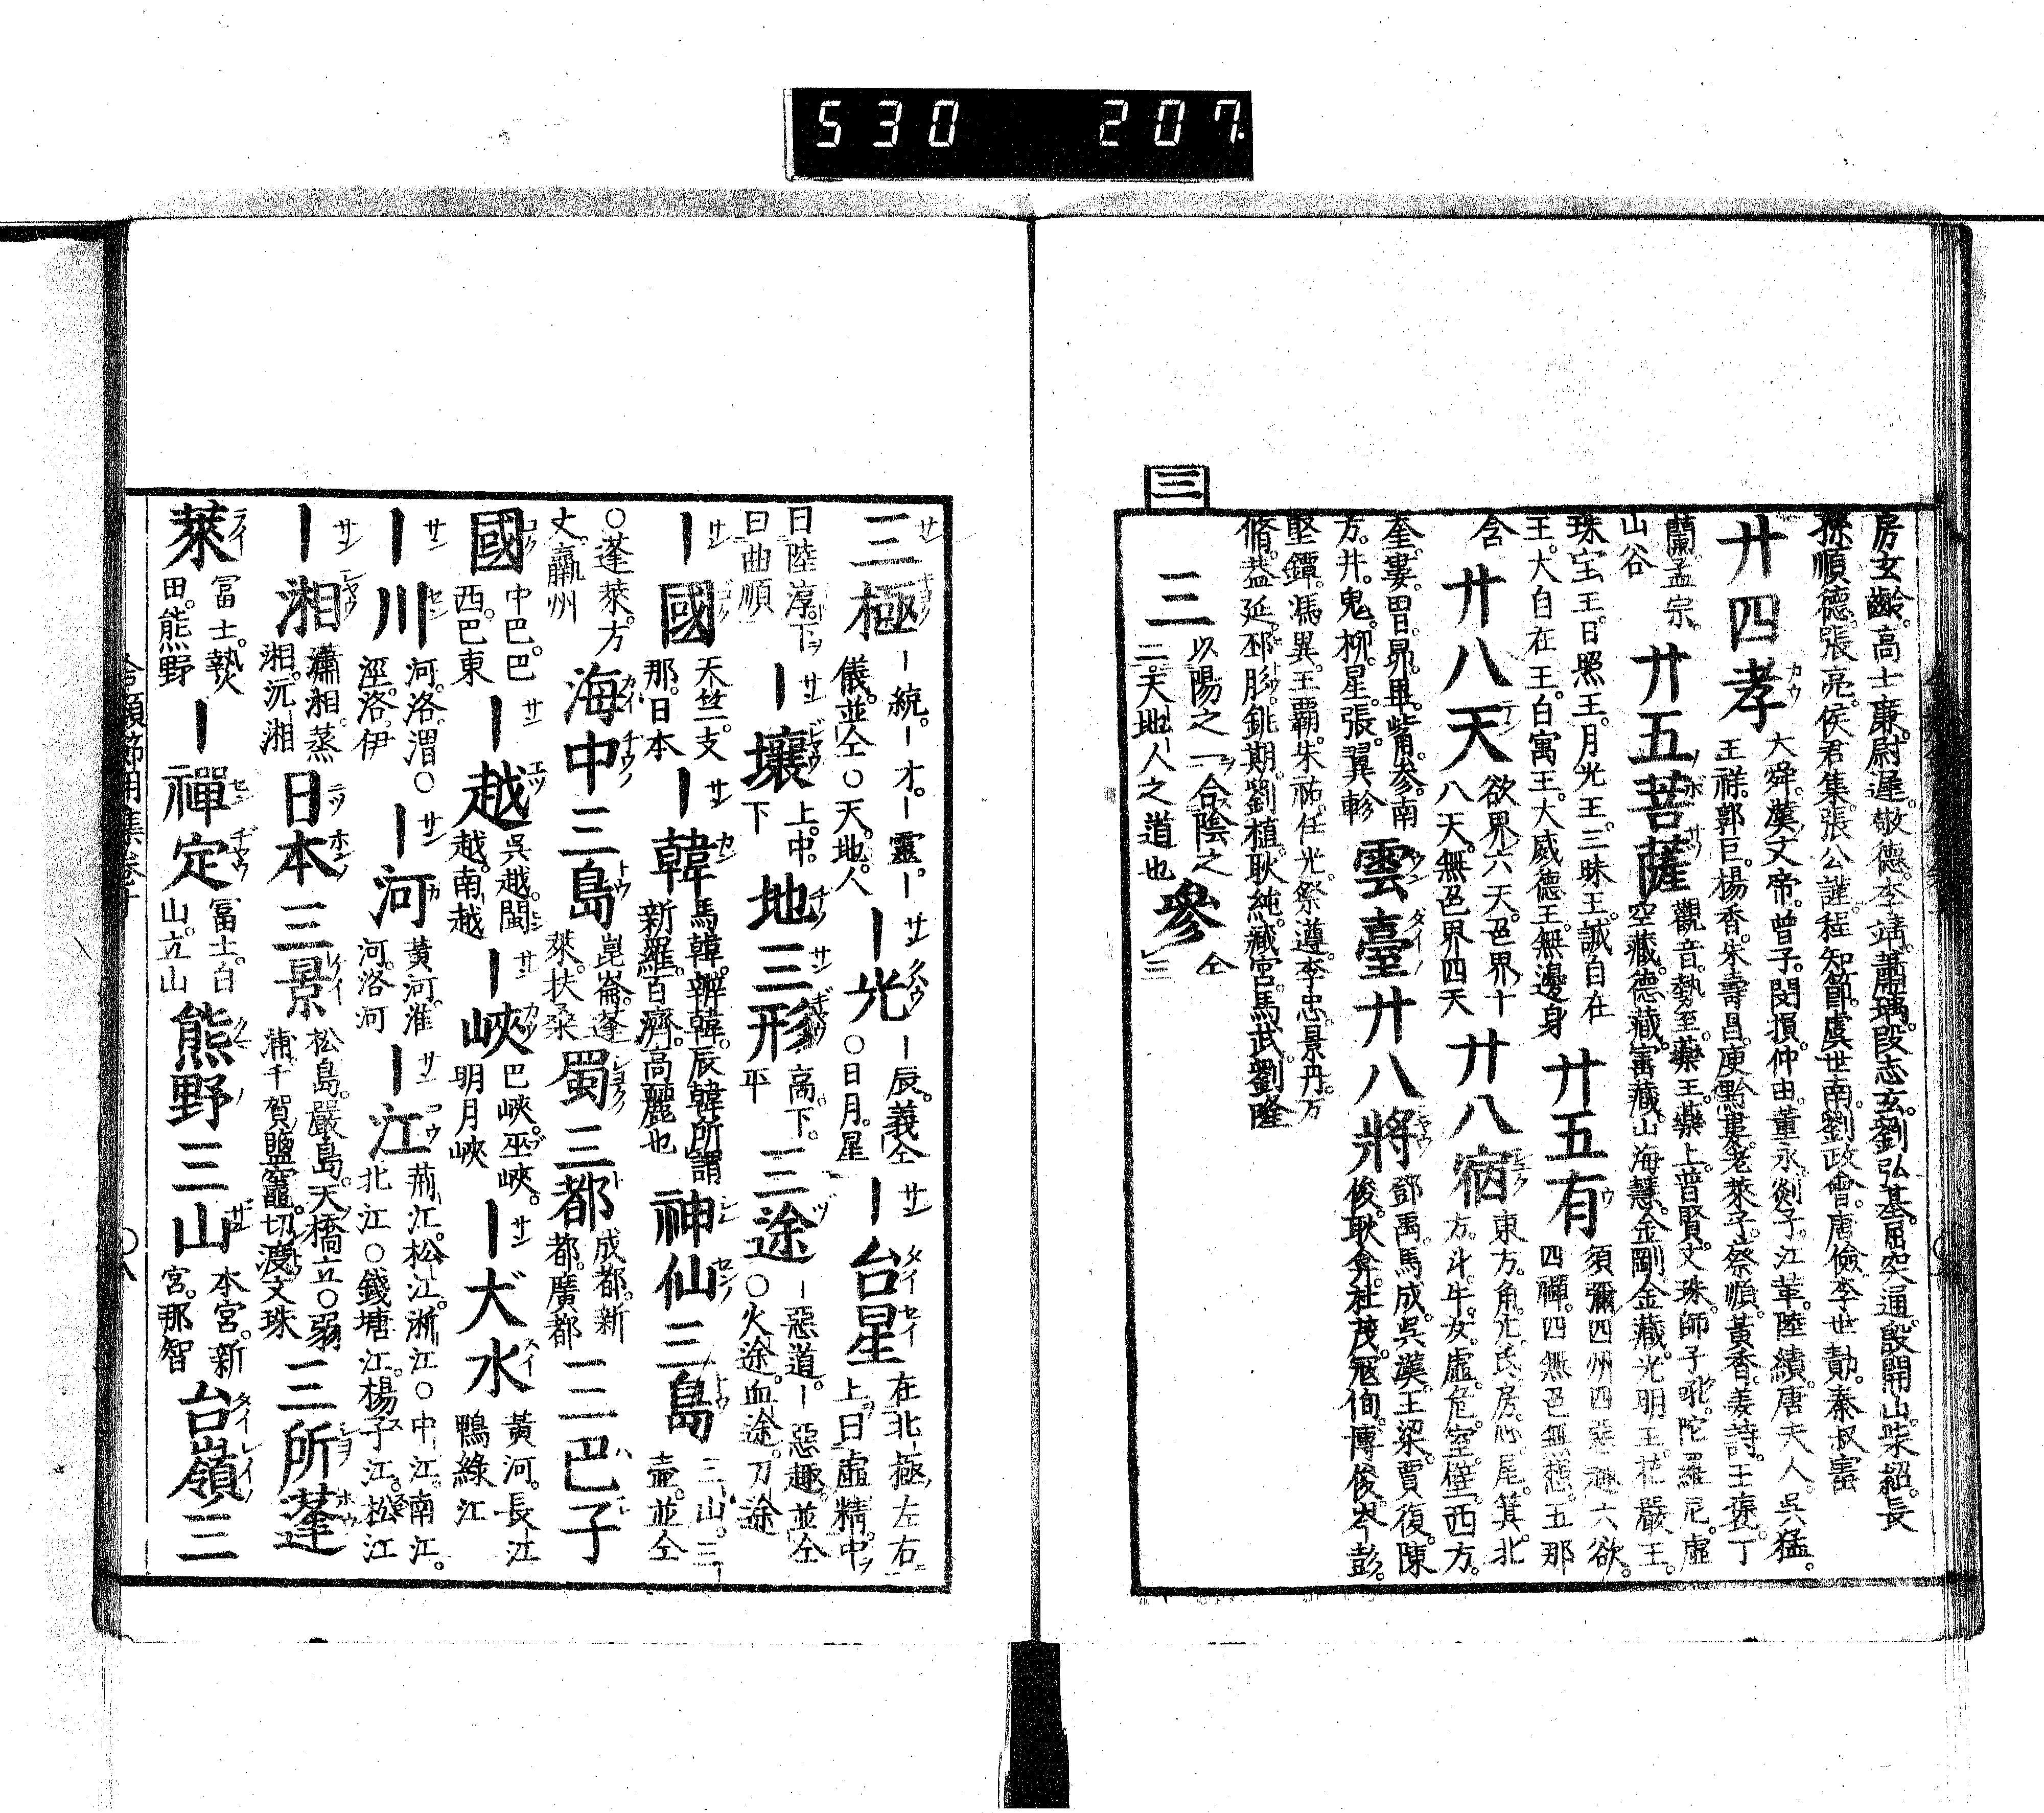 530 207
房玄齡。高士廉。尉遲敬德。李靖。蕭瑀。段志玄。劉弘基。屈突通。殷開山。柴紹。長
孫順德。張亮。侯君集。張公謹。程知節。虞世南。劉政會。唐儉。李世勣。秦叔寳
廿四孝 大舜。漢文帝。曽子。閔損。仲由。董永。剡子。江革。陸績。唐夫人。呉猛。
王祥。郭巨。楊香。朱壽昌。庾黔婁。老萊子。蔡順。黃香。姜詩。王裒。丁
蘭。孟宗。山谷
廿五菩薩 觀音。勢至。藥王。藥上。普賢。文珠。師子吼。陀羅尼。虛
空藏。德藏。寳藏。山海慧。金剛。金藏。光明王。花嚴王。
珠宝王。日照王。月光王。三昧王。誠自在
王。大自在王。白寓王。大威德王。無邊身
廿五有 須彌四州四惡趣六欲。
四禪。四無色無想。五那
含
廿八天 欲界六天。色界十
八天。無色界四天
廿八宿 東方。角。亢。氐。房。心。尾。箕。北
方。斗。牛。女。虛。危。室。壁。西方。
奎。婁。胃。昴。畢。觜。參。南
方。井。鬼。柳。星。張。翼。軫
雲臺廿八將 鄧禹。馬成。呉漢。王梁。賈復。陳
俊。耿弇。杜茂。冦恂。傅俊。岑彭。
堅鐔。馮異。王霸。朱祐。任光。祭遵。李忠。景丹。万
脩。葢延。邳肜。銚期。劉植。耿純。臧宮。馬武。劉隆
三
三 以陽之一合陰之
二。天地人之道也
參 仝三
三極 ー統。ー才。ー靈。ー
儀。並仝○天。地。人
ー光 ー辰。義仝
○日。月。星
ー台星 在北極左右
上曰虛精。中
曰陸淳。下
曰曲順
ー壤 上。中。
下
地三形 高。下。
平
三途 ー惡道。ー惡趣。並仝
○火途。血途。刀途
ー國 天竺。支
那。日本
ー韓 馬韓。辧韓。辰韓所謂
新羅。百濟。高麗也
神仙三島 三山。三
壷。並仝
○蓬萊。方
丈。瀛州
海中三島 崑崙。蓬
萊。扶桒
蜀三都 成都。新
都。廣都
三巴子
國 中巴。巴
西。巴東
ー越 呉越。閩
越。南越
ー峽 巴峽。巫峽。
明月峽
ー大水 黃河。長江
鴨綠江
ー川 河。洛。渭○
涇。洛。伊
ー河 黃河。淮
河。洛河
ー江 荊江。松江。淅江○中江。南江。
北江○錢塘江。楊子江。松江
ー湘 瀟湘。蒸
湘。沅湘
日本三景 松島。嚴島。天橋立○弱
浦。千賀鹽竈。切渡文珠
三所蓬
萊 冨士。𤍠
田。熊野
ー禪定 冨士。白
山。立山
熊野三山 本宮。新
宮。那智
台嶺三